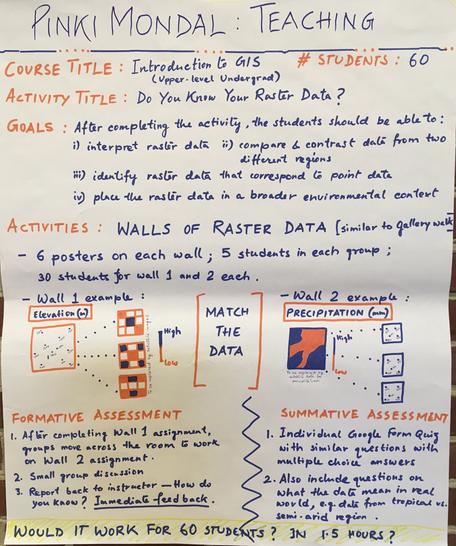 PINKI MONDAL : TEACHING
COURSE TITLE : Introduction to GIS # STUDENTS : 60
(Upper-level Undergrad)
ACTIVITY TITLE : Do You Know Your Raster Data ?
GOALS : After completing the activity, the students should be able to :
i) interpret raster data ii) compare & contrast data from two
different regions
iii) identify raster data that correspond to point data
iv) place the raster data in a broader environmental context
ACTIVITIES : WALLS OF RASTER DATA [similar to gallery walk]
- 6 posters on each wall ; 5 students in each group ;
30 students for wall 1 and 2 each .
- Wall 1 example :
Elevation (m)
High
Low
MATCH
THE
DATA
- Wall 2 example :
PRECIPITATION (mm)
High
Low
FORMATIVE ASSESSMENT
1. After completing Wall 1 assignment,
groups move across the room to work
on Wall 2 assignment.
2. Small group discussion
3. Report back to instructor — How do
you know ? Immediate feedback.
SUMMATIVE ASSESSMENT
1. Individual Google Form Quiz
with similar questions with
multiple choice answers
2. Also include questions on
what the data mean in real
world, e.g. data from tropical vs.
semi-arid region.
WOULD IT WORK FOR 60 STUDENTS ? IN 1.5 HOURS ?